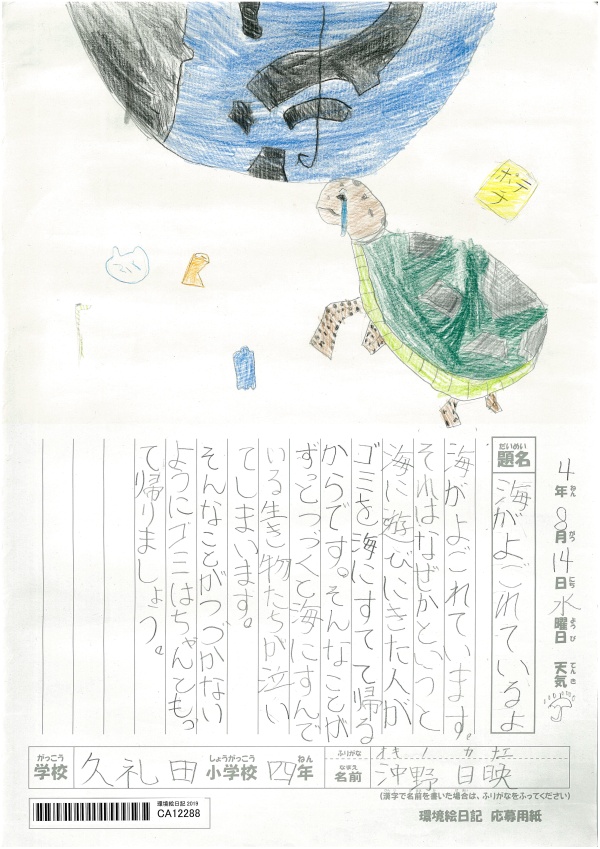 ポテ
チ
4年ねん8月がつ14日にち水曜日ようび 天気てんき
題名だいめい 海がよごれているよ
海がよごれています。
それはなぜかというと
海に遊びにきた人が
ゴミを海にすてて帰る
からです。そんなことが
ずっとつづくと海にすんで
いる生き物たちが泣い
てしまいます。
そんなことがつづかない
ようにゴミはちゃんともっ
て帰りましょう。
がっこう しょうがっこう ねん
学校 久礼田小学校 四年
ふりがな オキノ
なまえ
名前 沖野 日映
(漢字で名前を書いた場合は、ふりがなをふってください)
環境絵日記 2019
CA12288
環境絵日記 応募用紙